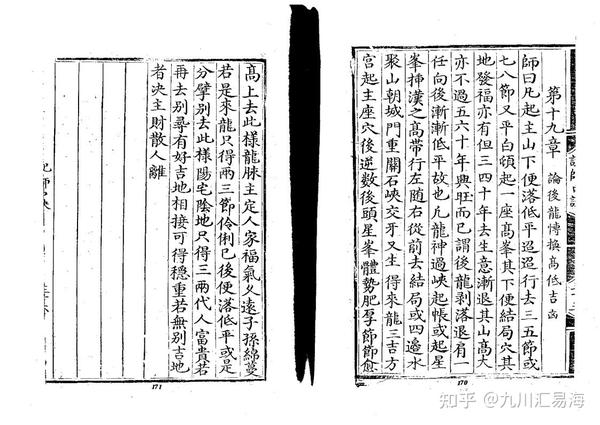 第十九章　論後龍博換高低吉凶
師曰凡起主山下便落低平迢迢行去三五節或
七八節又平白頃起一座高峯其下便結局穴其
地發福亦有但三四十年去生意漸退其山高大
亦不過五六十年興旺而已謂後龍剥落退肩一
任向後漸漸低平故也凡龍神過峽起帳或起星
峯揷漢之高帶行左随右從前去結局或四邉水
聚山朝城門重關石峽交牙又主得來龍三吉方
宫起主座穴後逆数後頭星峯體勢肥厚節節愈
170
高上去此様龍脉主定人家福氣乆遠子孫綿蔓
若是來龍只得兩三節伶俐已後便落低平或是
分擘别去此様陽宅陰地只得三兩代人富貴若
再去别尋有好吉地相接可得穩重若無别吉地
者决主財散人離
171
知乎 @九川汇易海